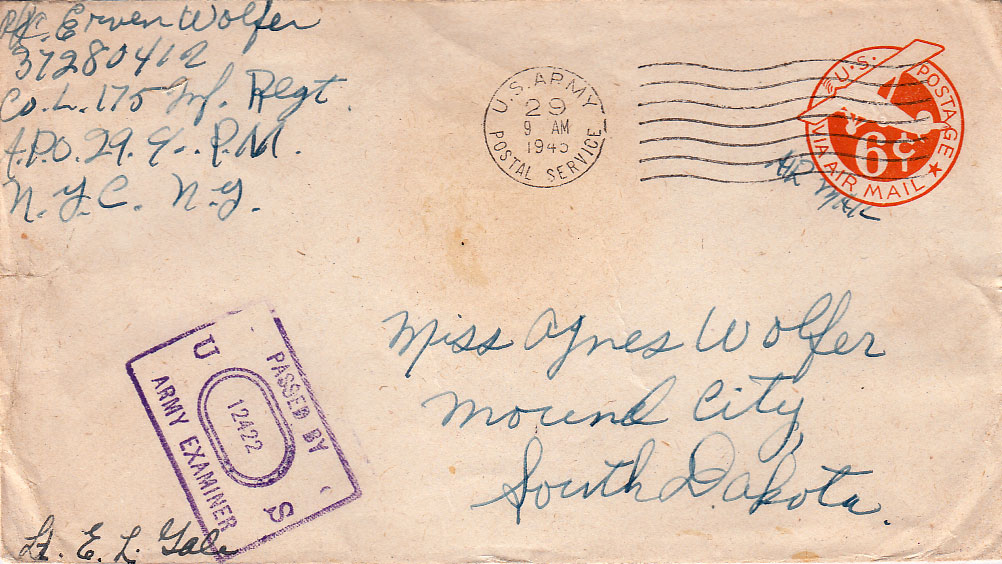 Pfc. Erven Wolfer
37280412
Co. L. 175 Inf. Regt.
A.P.O. 29. c/o. P.M.
N.Y.C. N.Y.
U.S. ARMY
29
9 AM
1945
POSTAL SERVICE
U.S. POSTAGE
6¢
VIA AIR MAIL
AIR MAIL
Miss Agnes Wolfer
Mound City,
South Dakota.
PASSED BY
U 12422 S
ARMY EXAMINER
Lt. E. L. Gale